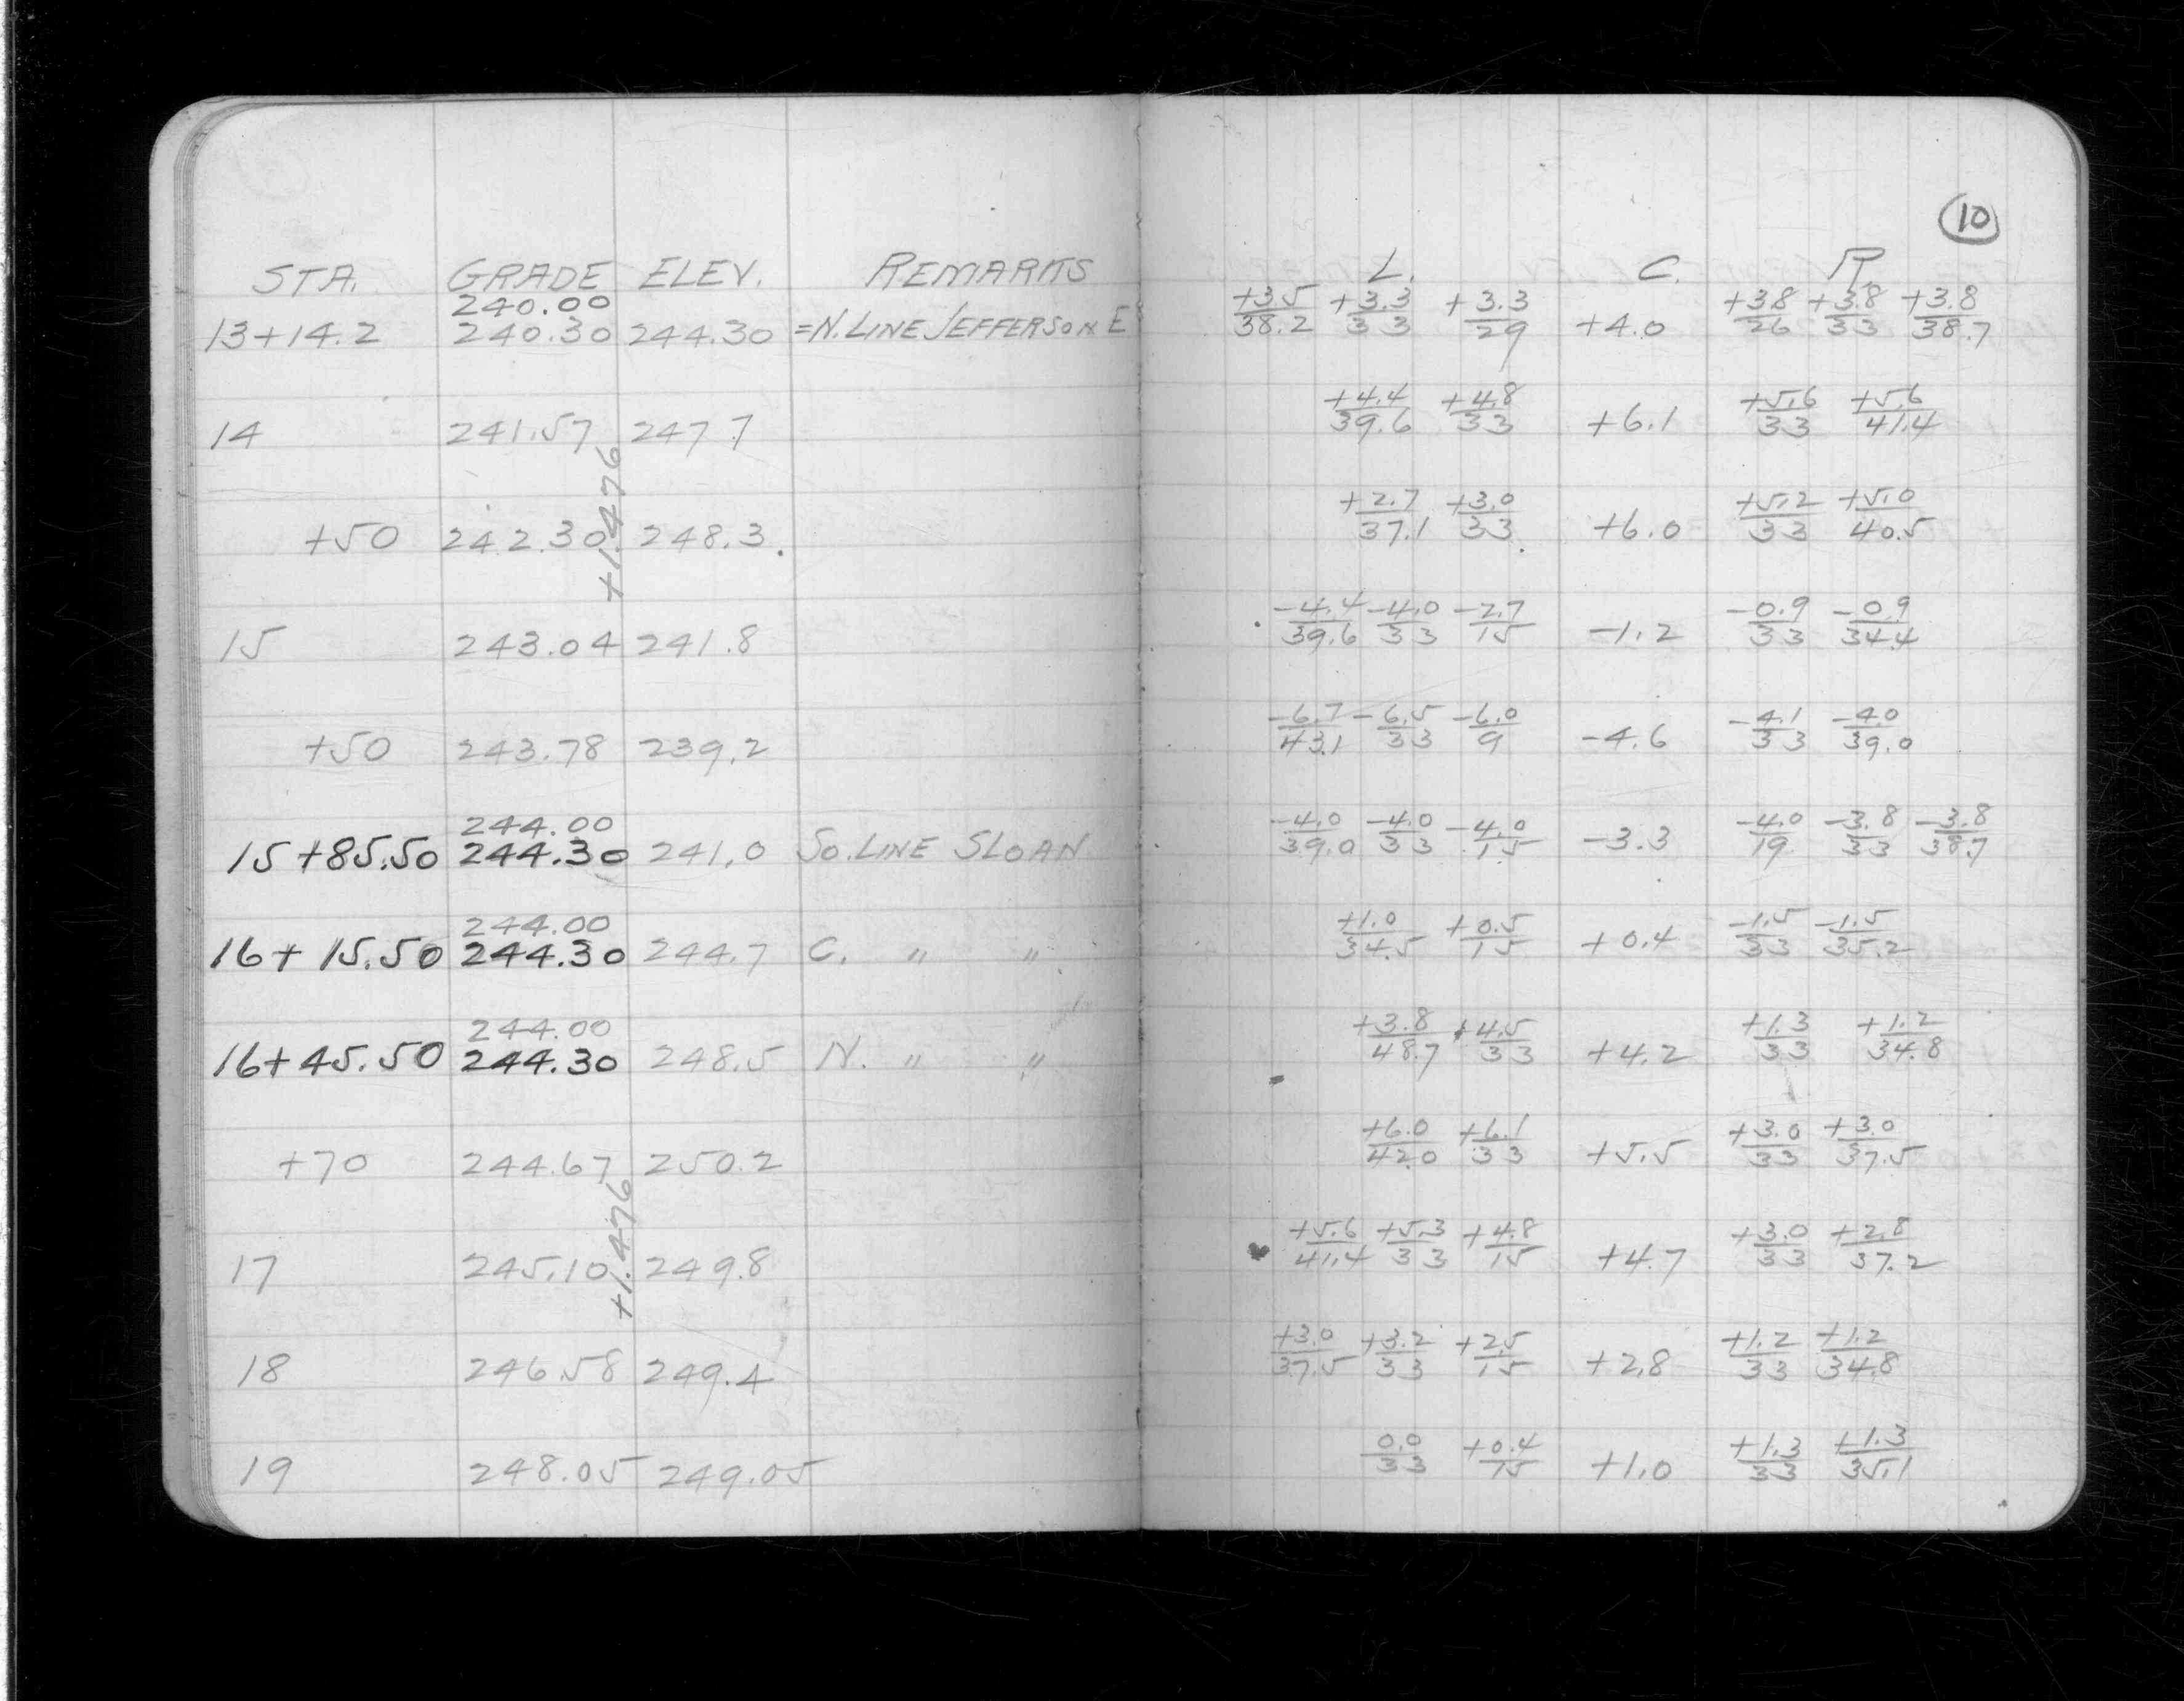 10
STA. GRADE ELEV. REMARKS L. C. R
240.00
13+14.2 240.30 244.30 =N. LINE JEFFERSON E +3.5/38.2 +3.3/33 +3.3/29 +4.0 +3.8/26 +3.8/33 +3.8/38.7
14 241.57 247.7 +4.4/39.6 +4.8/33 +6.1 +5.6/33 +5.6/41.4
+1.476
+50 242.30 248.3 +2.7/37.1 +3.0/33 +6.0 +5.2/33 +5.0/40.5
15 243.04 241.8 -4.4/39.6 -4.0/33 -2.7/15 -1.2 -0.9/33 -0.9/34.4
+50 243.78 239.2 -6.7/43.1 -6.5/33 -6.0/9 -4.6 -4.1/33 -4.0/39.0
244.00
15+85.50 244.30 241.0 SO. LINE SLOAN -4.0/39.0 -4.0/33 -4.0/15 -3.3 -4.0/19 -3.8/33 -3.8/38.7
244.00
16+15.50 244.30 244.7 C. " " +1.0/34.5 +0.5/15 +0.4 -1.5/33 -1.5/35.2
244.00
16+45.50 244.30 248.5 N. " " +3.8/48.7 +4.5/33 +4.2 +1.3/33 +1.2/34.8
+70 244.67 250.2 +6.0/42.0 +6.1/33 +5.5 +3.0/33 +3.0/37.5
+1.476
17 245.10 249.8 +5.6/41.4 +5.3/33 +4.8/15 +4.7 +3.0/33 +2.8/37.2
18 246.58 249.4 +3.0/37.5 +3.2/33 +2.5/15 +2.8 +1.2/33 +1.2/34.8
19 248.05 249.05 0.0/33 +0.4/15 +1.0 +1.3/33 +1.3/35.1